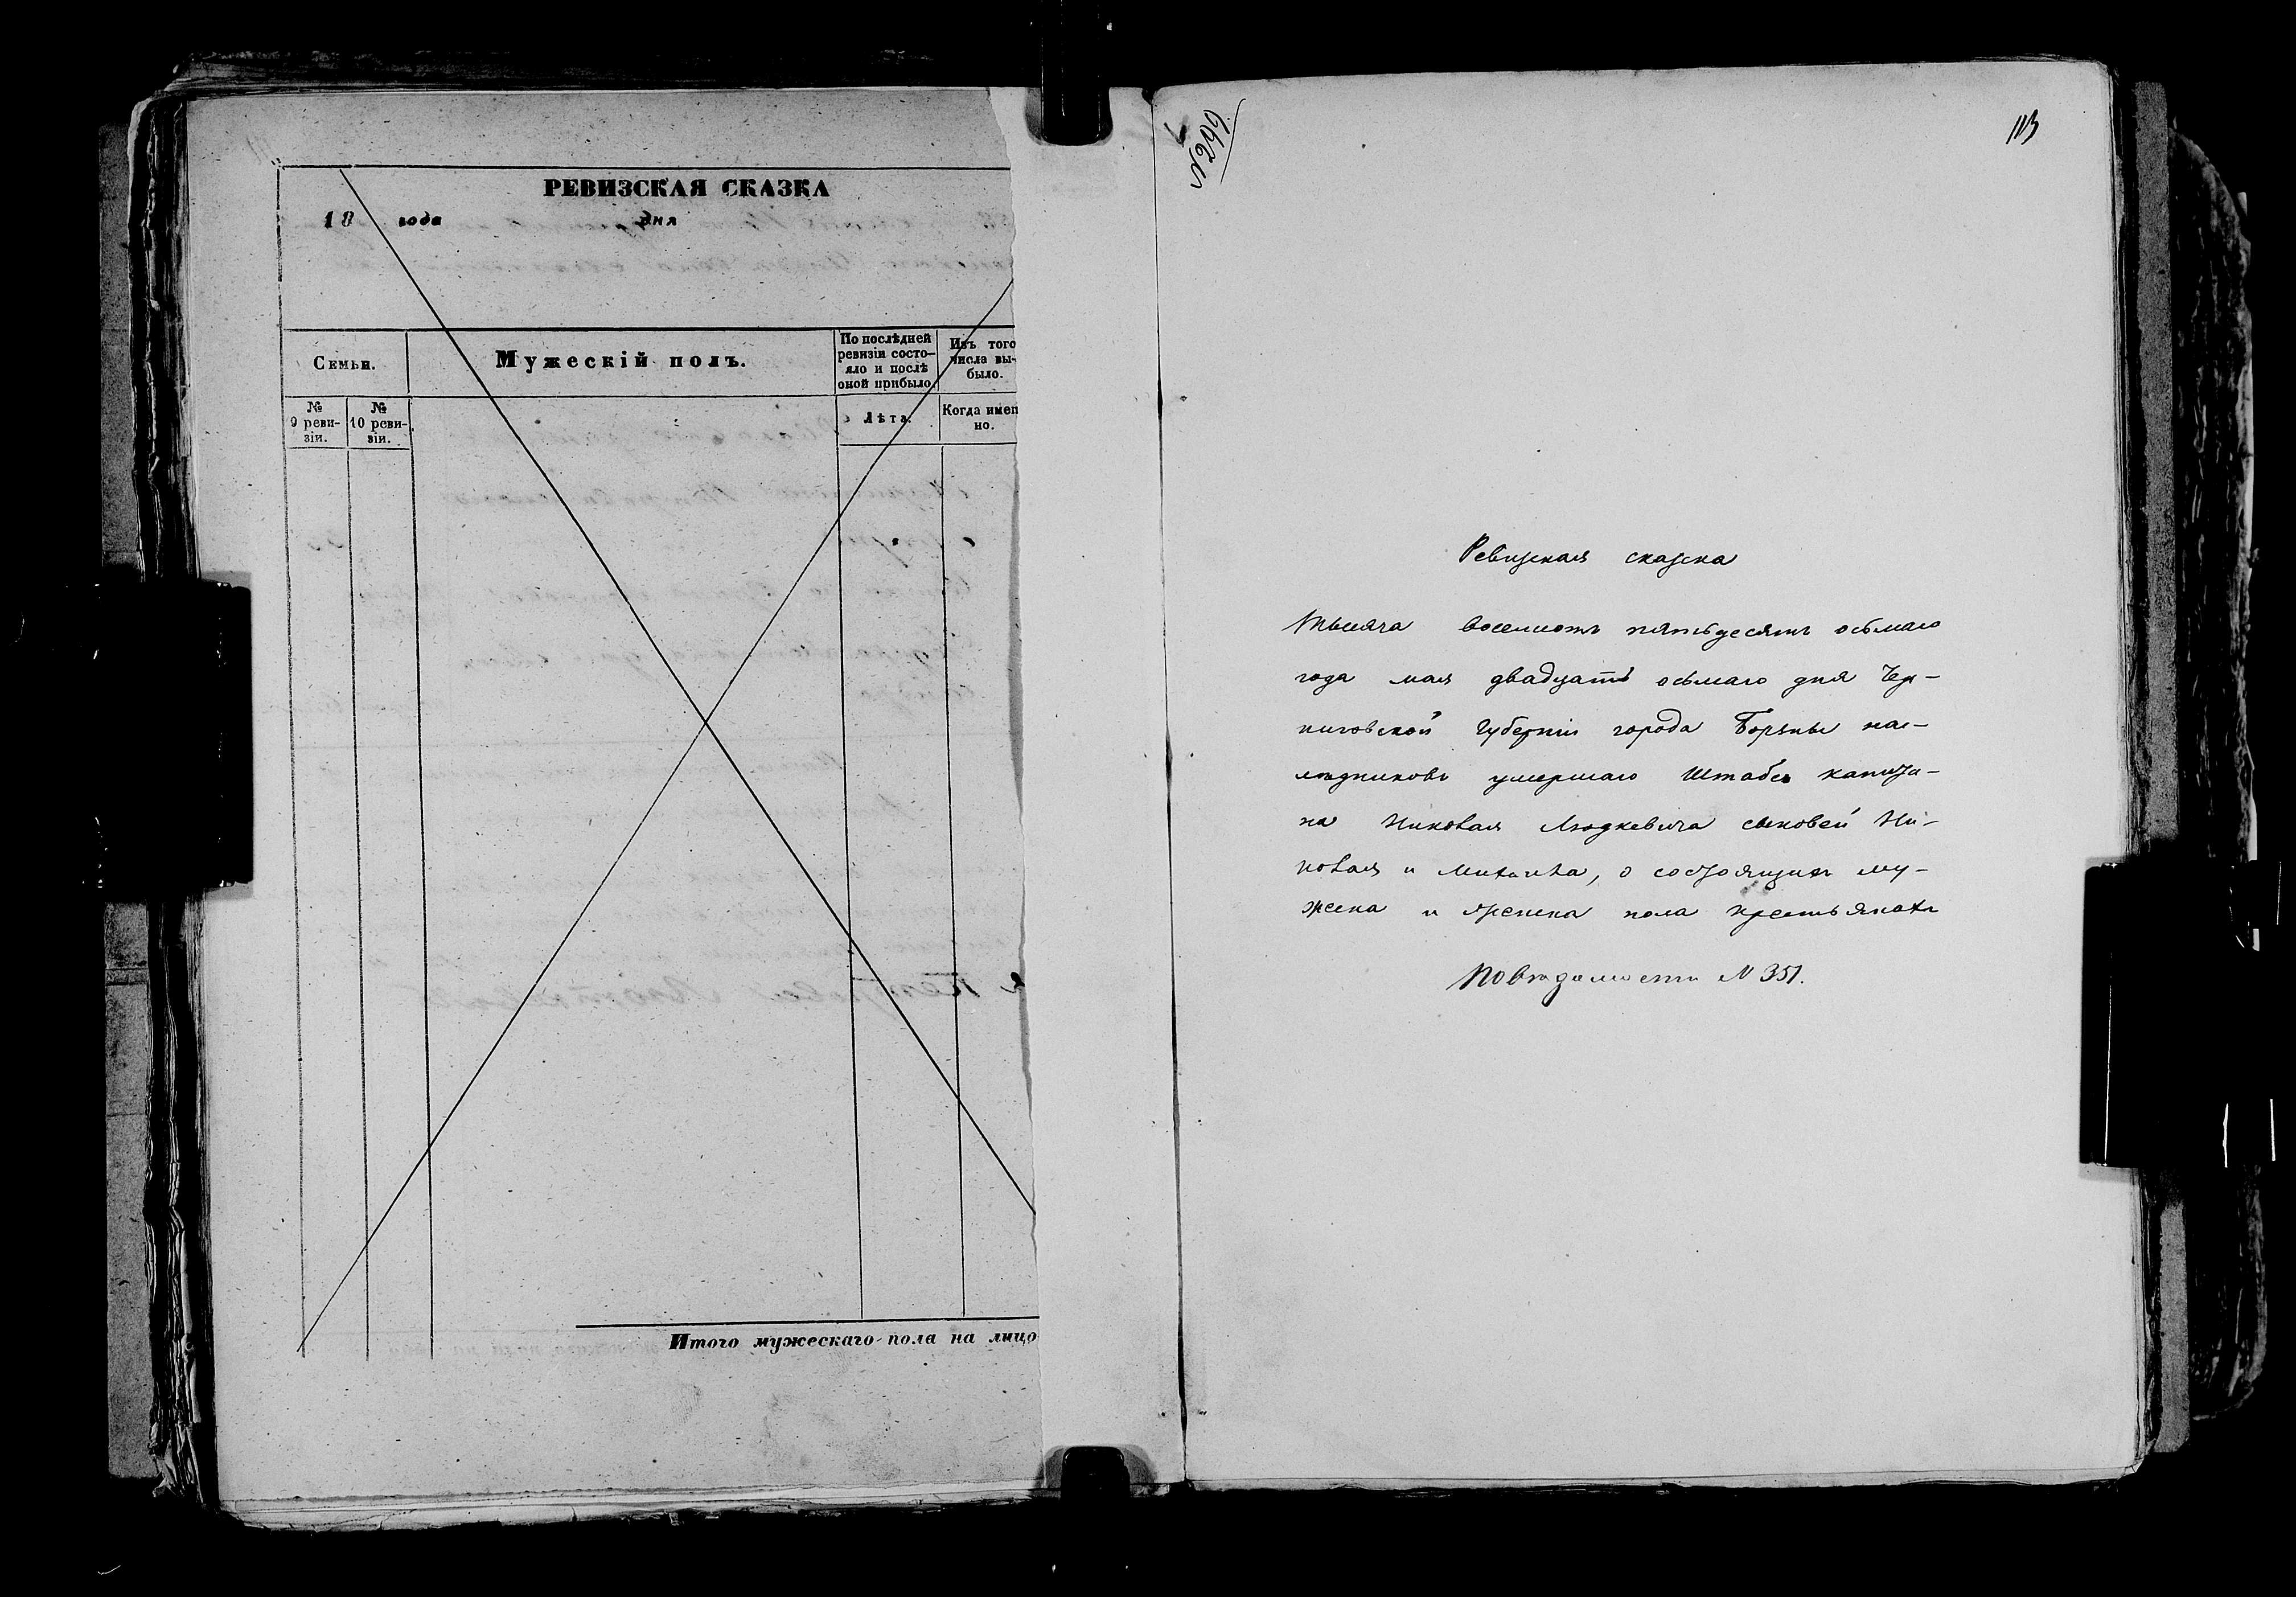 РЕВИЗСКАЯ СКАЗКА
18 года дня
Семьи.
Мужескій полъ.
По послѣдней
ревизіи состо-
яло и послѣ
оной прибыло.
Изъ того
числа вы-
было.
№
9 реви-
зіи.
№
10 реви-
зіи.
Лѣта.
Когда имен
но.
Итого мужескаго пола на лицо
№299.
113
Ревизская сказка
Тысяча восемсотъ пятьдесятъ осьмаго
года мая двадцать осьмаго дня Чер-
ниговской Губерніи города Борзны нас-
лѣдниковъ умершаго Штабсъ капита-
на Николая Людкевича сыновей Ни-
колая и Михаила, о состоящихъ му-
жеска и женска пола крестьянахъ
По вѣдомости № 351.